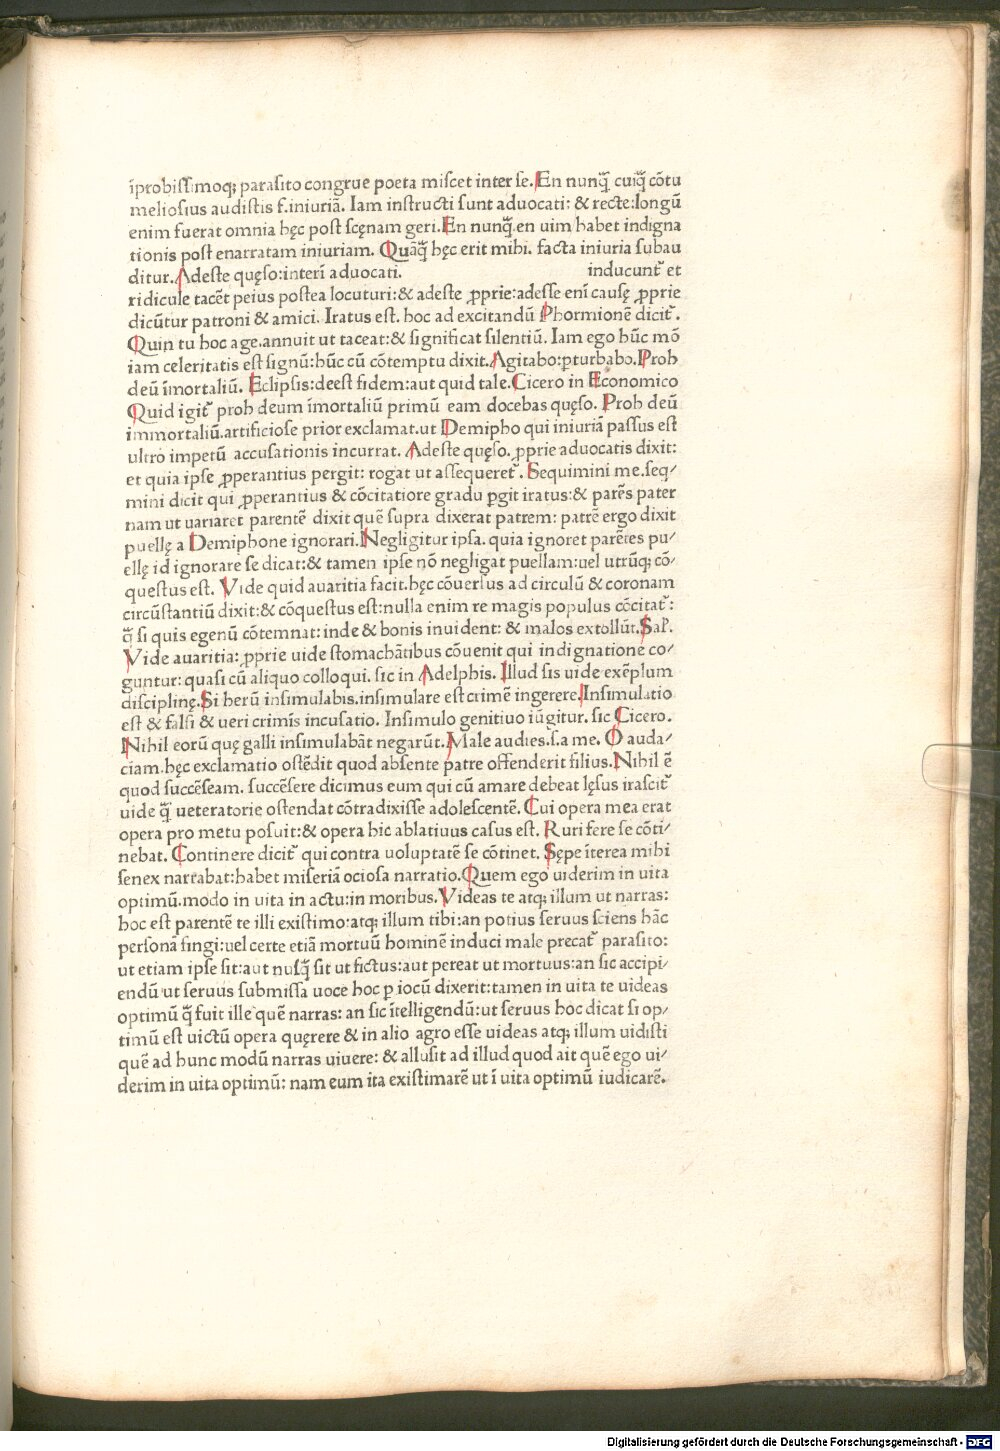 īprobiſſimoq; paraſito congrue poeta miſcet inter ſe. En nunq̄̃ cuiq̄̃ cõtu
melioſius audiſtis ſ. iniuriā. Iam inſtructi ſunt aduocati: & recte: longū
enim fuerat omnia hęc poſt ſcęnam geri. En nunq̄̃. en uim habet indigna
tionis poſt enarratam iniuriam. Quāq̄̃ hęc erit mihi. facta iniuria ſubau
ditur. Adeſte quęſo: interī aduocati. inducunt᷑ et
ridicule tacēt peius poſtea locuturi: & adeſte ꝓprie: adeſſe enī cauſę ꝓprie
dicūtur patroni & amici. Iratus eſt. hoc ad excitandū Phormionē dicit᷑.
Quin tu hoc age. annuit ut taceat: & ſignificat ſilentiū. Iam ego hūc mō
iam celeritatis eſt ſignū: hūc cū cōtemptu dixit. Agitabo: ꝑturbabo. Proh
deū īmortaliū. Eclipſis: deeſt fidem: aut quid tale. Cicero in Economico
Quid igit᷑ proh deum īmortaliū primū eam docebas quęſo. Proh deū
immortaliū. artificioſe prior exclamat. ut Demipho qui iniuriā paſſus eſt
ultro impetū accuſationis incurrat. Adeſte quęſo. ꝓprie aduocatis dixit:
et quia ipſe ꝓperantius pergit: rogat ut aſſequeret᷑. Sequimini me. ſeq/
mini dicit qui ꝓperantius & cōcitatiore gradu ꝑgit iratus: & parēs pater
nam ut uariaret parentē dixit quē ſupra dixerat patrem: patrē ergo dixit
puellę a Demiphone ignorari. Negligitur ipſa. quia ignoret parētes pu/
ellę id ignorare ſe dicat: & tamen ipſe nō negligat puellam: uel utrūq; cō/
queſtus eſt. Vide quid auaritia facit. hęc cōuerſus ad circulū & coronam
circūſtantiū dixit: & cōqueſtus eſt: nulla enim re magis populus cōcitat᷑:
q̄̃ ſi quis egenū cōtemnat: inde & bonis inuident: & malos extollūt. Sal᷑.
Vide auaritia: ꝓprie uide ſtomachātibus cōuenit qui indignatione co/
guntur: quaſi cū aliquo colloqui. ſic in Adelphis. Illud ſis uide exēplum
diſciplinę. Si herū inſimulabis. inſimulare eſt crimē ingerere. Inſimulatio
eſt & falſi & ueri crimīs incuſatio. Inſimulo genitiuo iūgitur. ſic Cicero.
Nihil eorū quę galli inſimulabāt negarūt. Male audies. ſ. a me. O auda/
ciam. hęc exclamatio oſtēdit quod abſente patre offenderit filius. Nihil ē
quod ſuccēſeam. ſuccēſere dicimus eum qui cū amare debeat lęſus iraſcit᷑
uide q̄̃ ueteratorie oſtendat cōtradixiſſe adoleſcentē. Cui opera mea erat
opera pro metu poſuit: & opera hic ablatiuus caſus eſt. Ruri fere ſe cōti/
nebat. Continere dicit᷑ qui contra uoluptatē ſe cōtinet. Sępe īterea mihi
ſenex narrabat: habet miſeriā ocioſa narratio. Quem ego uiderim in uita
optimū. modo in uita in actu: in moribus. Videas te atq; illum ut narras:
hoc eſt parentē te illi exiſtimo: atq; illum tibi: an potius ſeruus ſciens hāc
perſonā fingi: uel certe etiā mortuū hominē induci male precat᷑ paraſito:
ut etiam ipſe ſit: aut nuſq̄̃ ſit ut fictus: aut pereat ut mortuus: an ſic accipi/
endū ut ſeruus ſubmiſſa uoce hoc ꝑ iocū dixerit: tamen in uita te uideas
optimū q̄̃ fuit ille quē narras: an ſic ītelligendū: ut ſeruus hoc dicat ſi op/
timū eſt uictū opera quęrere & in alio agro eſſe uideas atq; illum uidiſti
quē ad hunc modū narras uiuere: & alluſit ad illud quod ait quē ego ui/
derim in uita optimū: nam eum ita exiſtimarē ut ī uita optimū iudicarē.
Digitalisierung gefördert durch die Deutsche Forschungsgemeinschaft - DFG